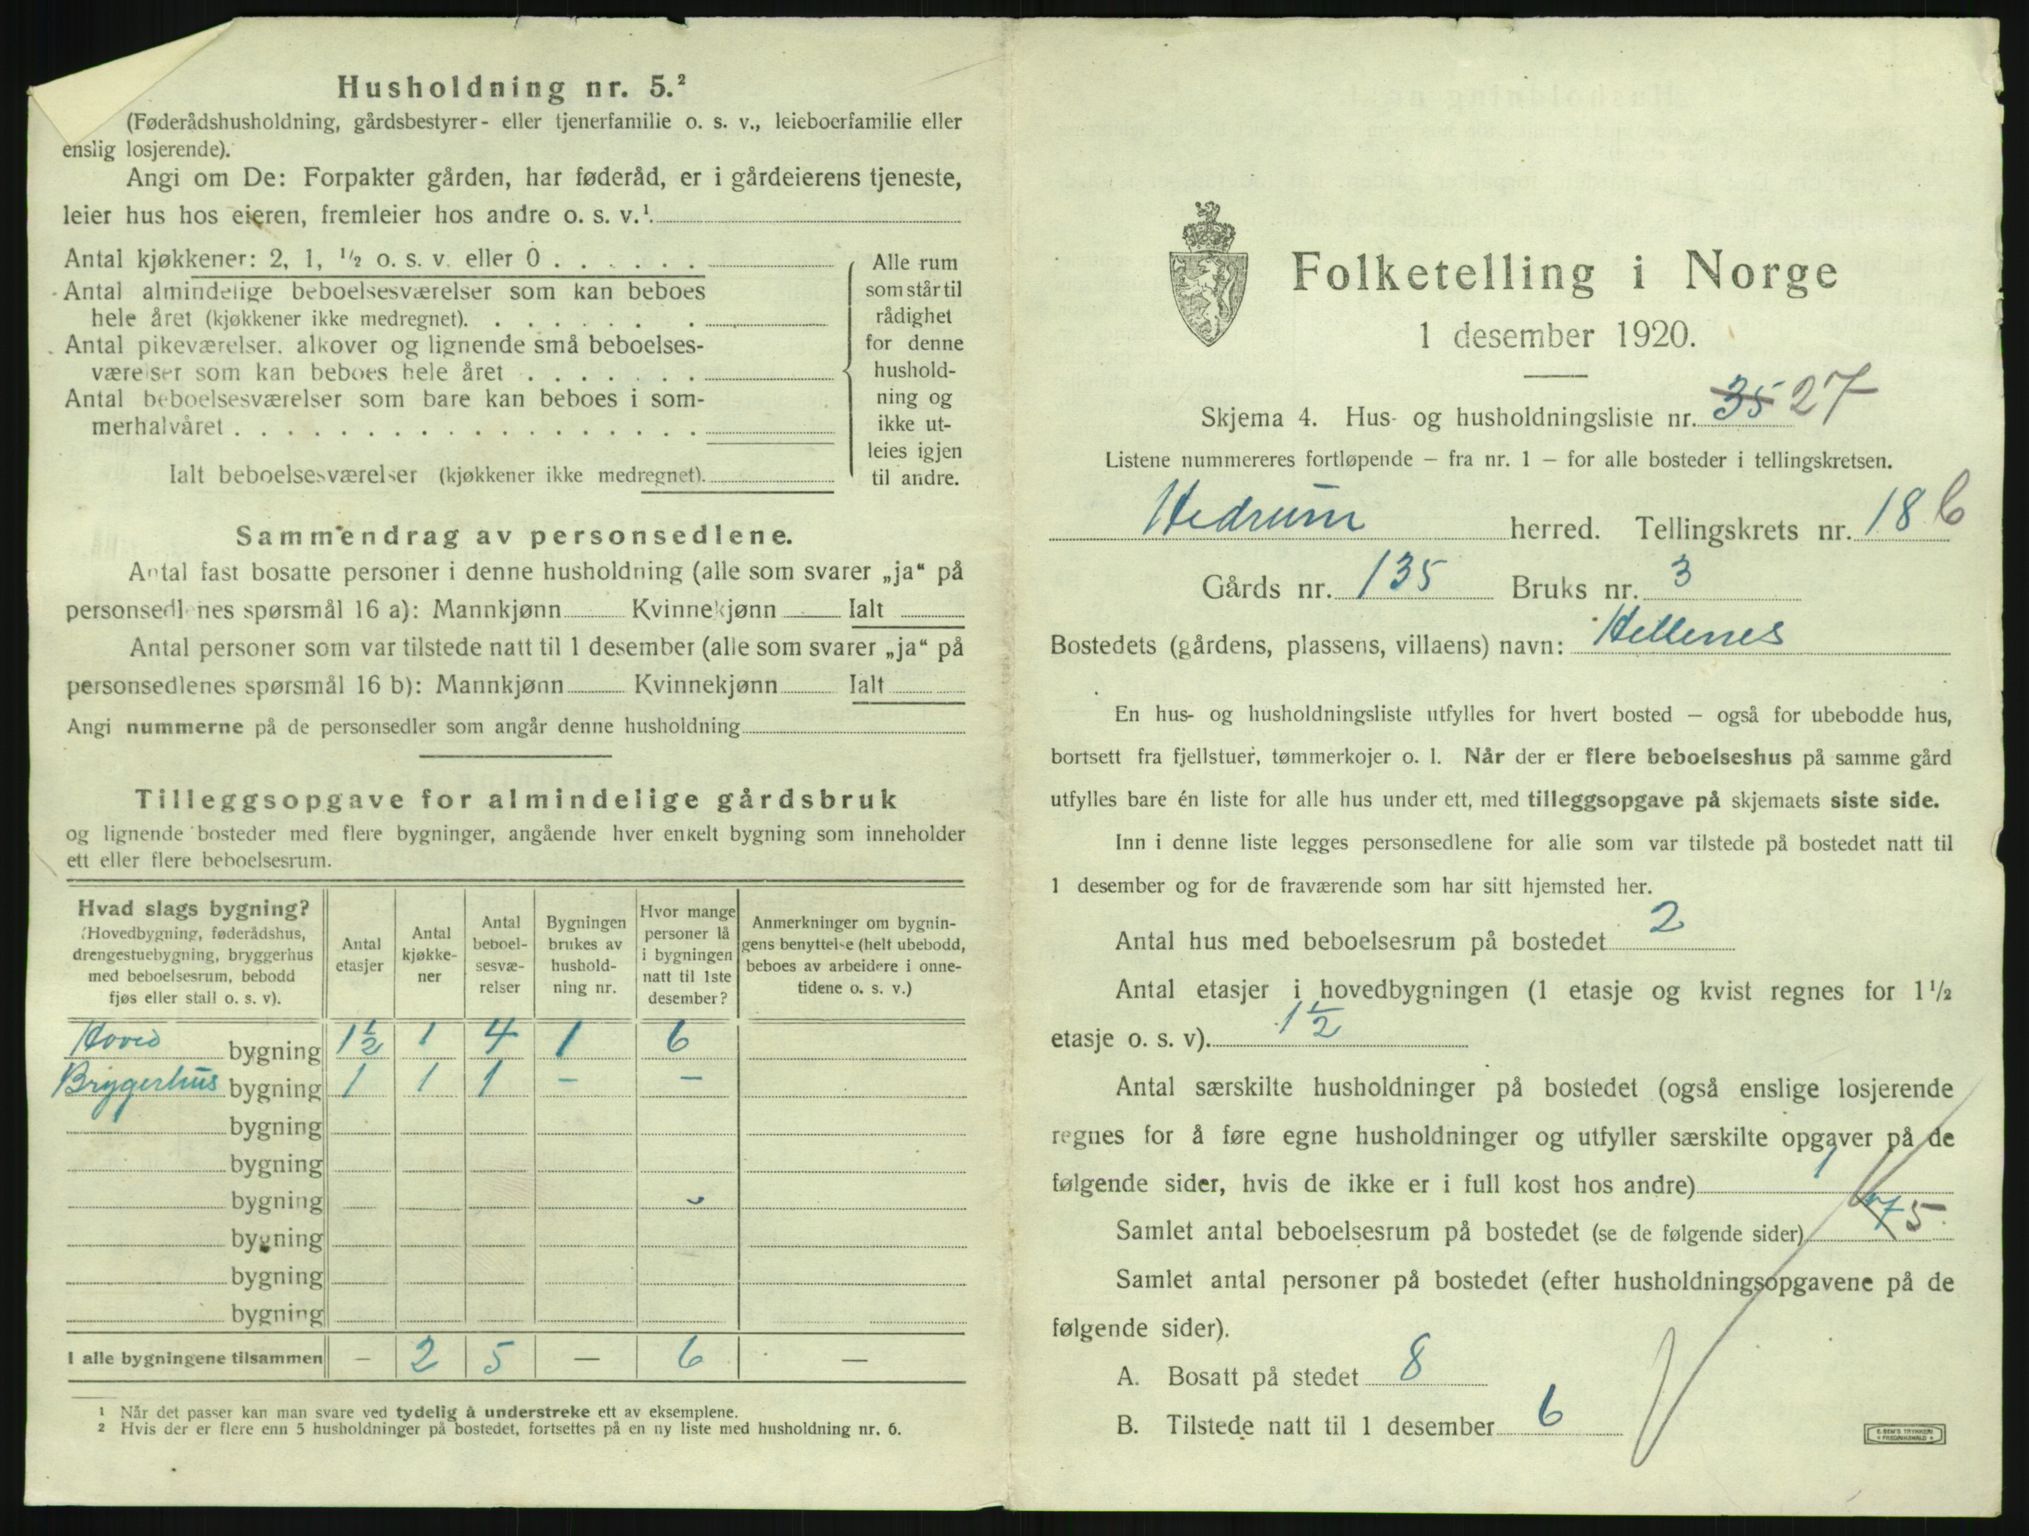 Husholdning nr. 5.²
(Føderådshusholdning, gårdsbestyrer- eller tjenerfamilie o. s. v., leieboerfamilie eller
enslig losjerende).
Angi om De: Forpakter gården, har føderåd, er i gårdeierens tjeneste,
leier hus hos eieren, fremleier hos andre o. s. v.¹
Antal kjøkkener: 2, 1, ½ o. s. v. eller 0 . . . . . .
Antal almindelige beboelsesværelser som kan beboes
hele året (kjøkkener ikke medregnet). . . . . . . .
Antal pikeværelser. alkover og lignende små beboelses-
værelser som kan beboes hele året . . . . . . .
Antal beboelsesværelser som bare kan beboes i som-
merhalvåret . . . . . . . . . . . . . . . . . .
Ialt beboelsesværelser (kjøkkener ikke medregnet).
Alle rum
som står til
rådighet
for denne
hushold-
ning og
ikke ut-
leies igjen
til andre.
Sammendrag av personsedlene.
Antal fast bosatte personer i denne husholdning (alle som svarer „ja“ på
personsedlenes spørsmål 16 a): Mannkjønn Kvinnekjønn Ialt
Antal personer som var tilstede natt til 1 desember (alle som svarer „ja“ på
personsedlenes spørsmål 16 b): Mannkjønn Kvinnekjønn Ialt
Angi nummerne på de personsedler som angår denne husholdning
Tilleggsopgave for almindelige gårdsbruk
og lignende bosteder med flere bygninger, angående hver enkelt bygning som inneholder
ett eller flere beboelsesrum.
Hvad slags bygning?
(Hovedbygning, føderådshus,
drengestuebygning, bryggerhus
med beboelsesrum, bebodd
fjøs eller stall o. s. v).
Antal
etasjer
Antal
kjøkke-
ner
Antal
beboel-
sesvæ-
relser
Bygningen
brukes av
hushold-
ning nr.
Hvor mange
personer lå
i bygningen
natt til 1ste
desember?
Anmerkninger om bygnin-
gens benyttelse (helt ubebodd,
beboes av arbeidere i onne-
tidene o. s. v.)
Hoved bygning 1½ 1 4 1 6
Bryggerhus bygning 1 1 1 – –
bygning
bygning
bygning
bygning
bygning
bygning
I alle bygningene tilsammen – 2 5 – 6 –
¹ Når det passer kan man svare ved tydelig å understreke ett av eksemplene.
² Hvis der er flere enn 5 husholdninger på bostedet, fortsettes på en ny liste med husholdning nr. 6.
Folketelling i Norge
1 desember 1920.
Skjema 4. Hus- og husholdningsliste nr. 35 27
Listene nummereres fortløpende – fra nr. 1 – for alle bosteder i tellingskretsen.
Hedrum herred. Tellingskrets nr. 18 b
Gårds nr. 135 Bruks nr. 3
Bostedets (gårdens, plassens, villaens) navn: Hellenes
En hus- og husholdningsliste utfylles for hvert bosted – også for ubebodde hus,
bortsett fra fjellstuer, tømmerkojer o. l. Når der er flere beboelseshus på samme gård
utfylles bare én liste for alle hus under ett, med tilleggsopgave på skjemaets siste side.
Inn i denne liste legges personsedlene for alle som var tilstede på bostedet natt til
1 desember og for de fraværende som har sitt hjemsted her.
Antal hus med beboelsesrum på bostedet 2
Antal etasjer i hovedbygningen (1 etasje og kvist regnes for 1½
etasje o. s. v). 1½
Antal særskilte husholdninger på bostedet (også enslige losjerende
regnes for å føre egne husholdninger og utfyller særskilte opgaver på de
følgende sider, hvis de ikke er i full kost hos andre) 1
Samlet antal beboelsesrum på bostedet (se de følgende sider) 7 5
Samlet antal personer på bostedet (efter husholdningsopgavene på de
følgende sider).
A. Bosatt på stedet 8
B. Tilstede natt til 1 desember 6
E. SEM'S TRYKKERI
FREDRIKSHALD